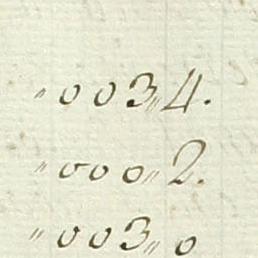 〃003〃4.
〃000〃2.
〃003〃0